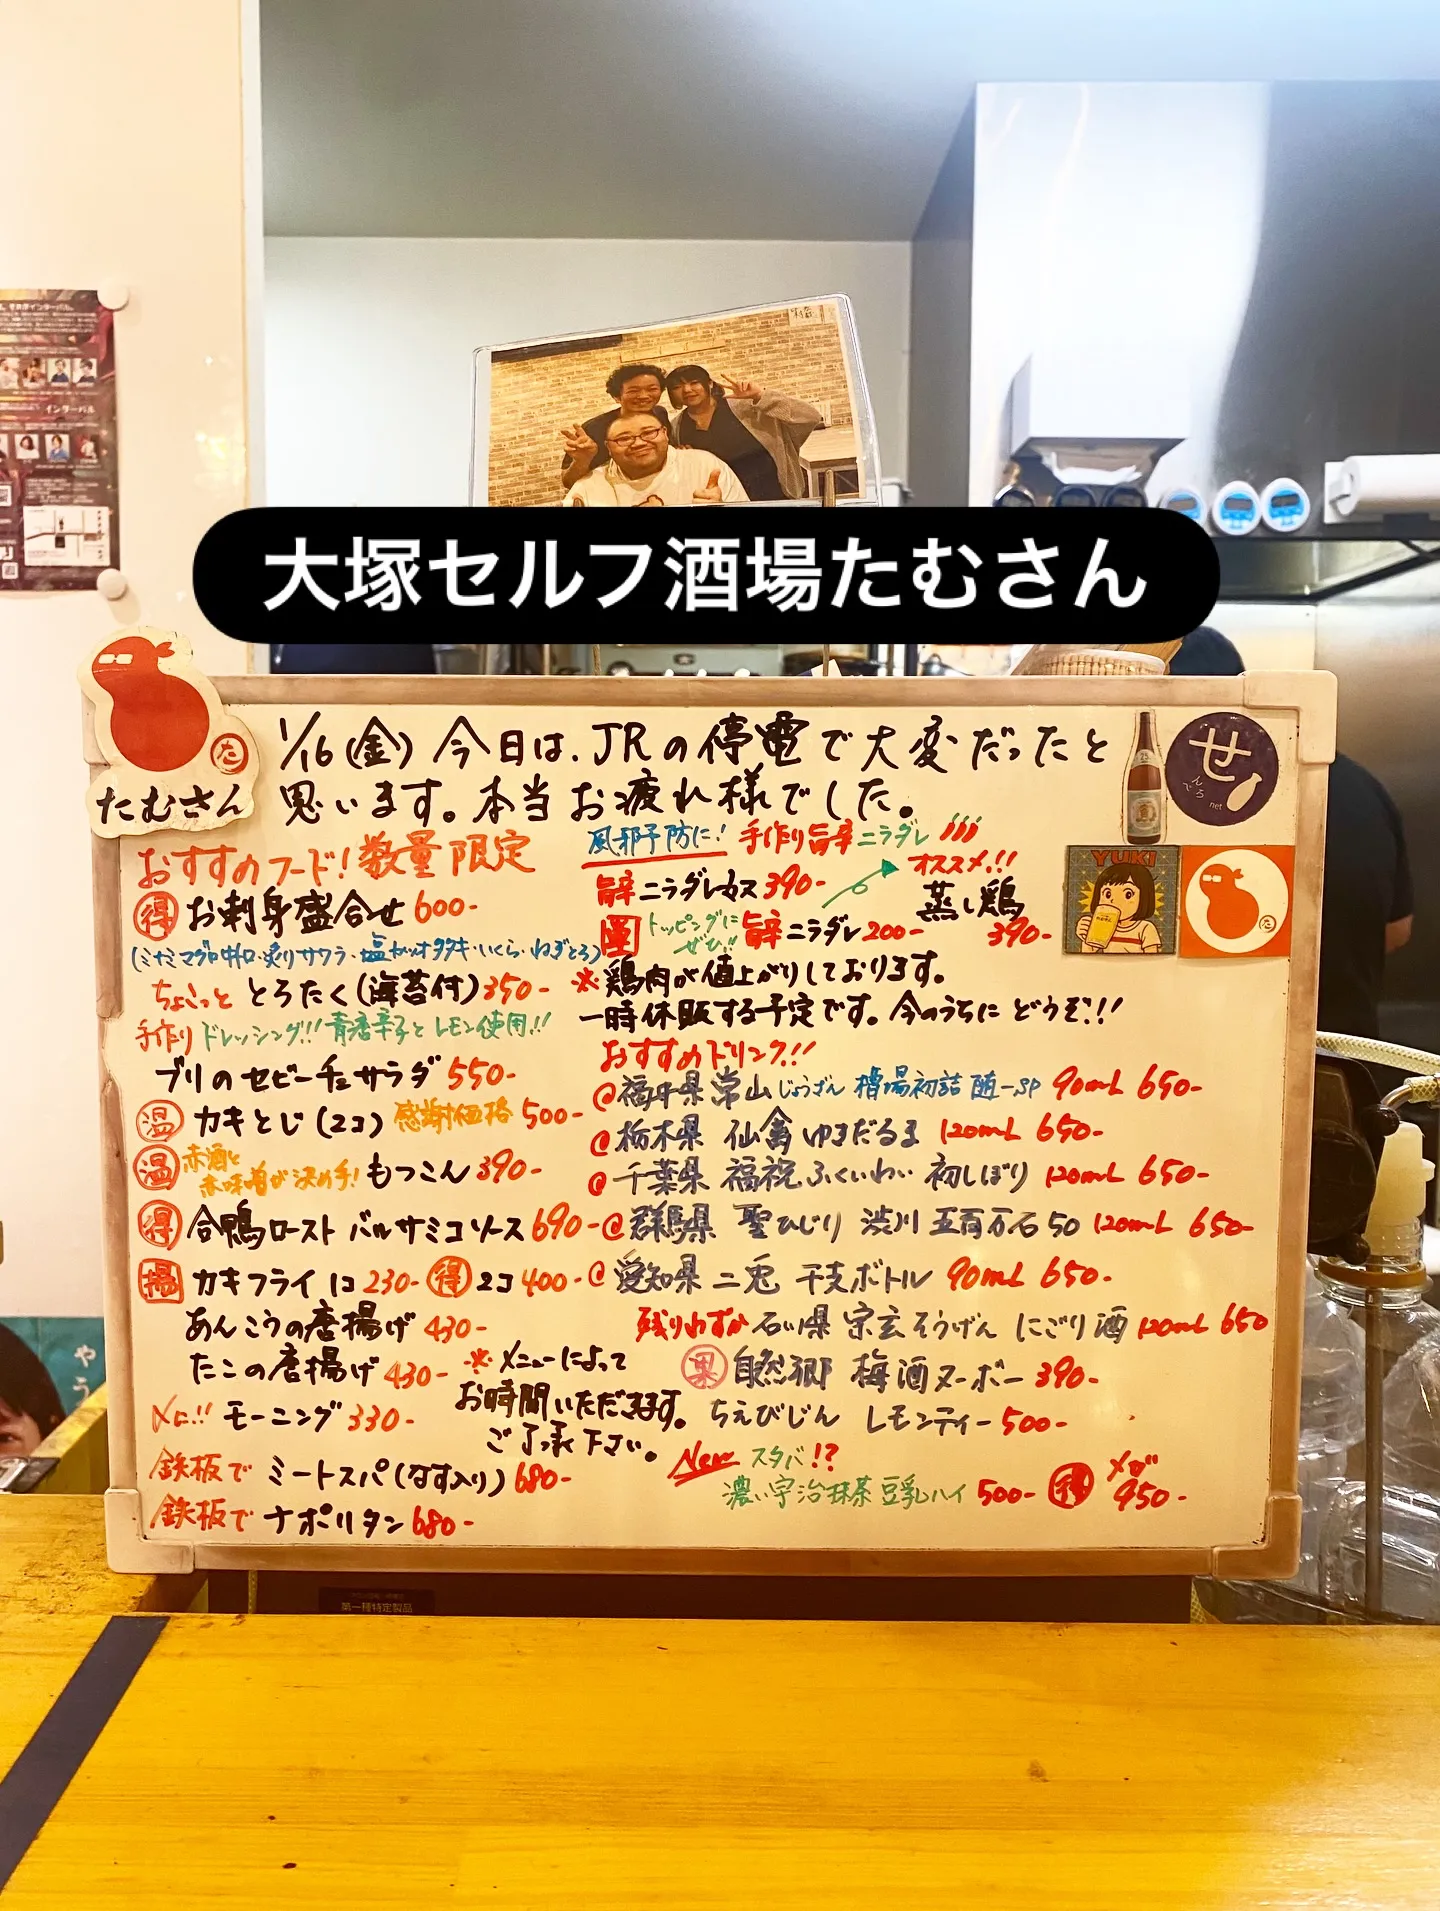 大塚セルフ酒場たむさん
インターバル
たむさん
た
1/16(金) 今日は、JRの停電で大変だったと
思います。本当お疲れ様でした。
せ
んべろ
net
YUKI
おすすめフード！数量限定
得 お刺身盛合せ 600-
ちょこっと とろたく(海苔付) 350-
手作りドレッシング!! 青唐辛子とレモン使用!!
ブリのセビーチェサラダ 550-
温 カキとじ(2コ) 感謝価格 500-
温 赤酒と
赤味噌が決め手! もつこん 390-
得 合鴨ロースト バルサミコソース 690-
揚 カキフライ 1コ 230- 得 2コ 400-
あんこうの唐揚げ 430-
たこの唐揚げ 430-
〆に!! モーニング 330-
鉄板で ミートスパ(なす入り) 680-
鉄板で ナポリタン 680-
※メニューによって
お時間いただきます。
ご了承下さい。
風邪予防に! 手作り旨辛ニラダレ
オススメ!!
旨辛ニラダレ 390-
蒸し鶏
390-
トッピングに
ぜひ!! 旨辛ニラダレ 200-
※鶏肉が値上がりしております。
一時休販する予定です。今のうちにどうぞ!!
おすすめドリンク!!
@福井県 常山 じょうざん 槽場初詰 随一SP 90mL 650-
@栃木県 仙禽 ゆきだるま 120mL 650-
@千葉県 福祝 ふくいわい 初しぼり 120mL 650-
@群馬県 聖ひじり 渋川 五百万石50 120mL 650-
@愛知県 二兎 干支ボトル 90mL 650-
残りわずか 石川県 宗玄 そうげん にごり酒 120mL 650
果 自然郷 梅酒ヌーボー 390-
ちえびじん レモンティー 500-
New スタバ!?
濃い宇治抹茶豆乳ハイ 500- 得 メガ
950-
第一種特定製品
やう